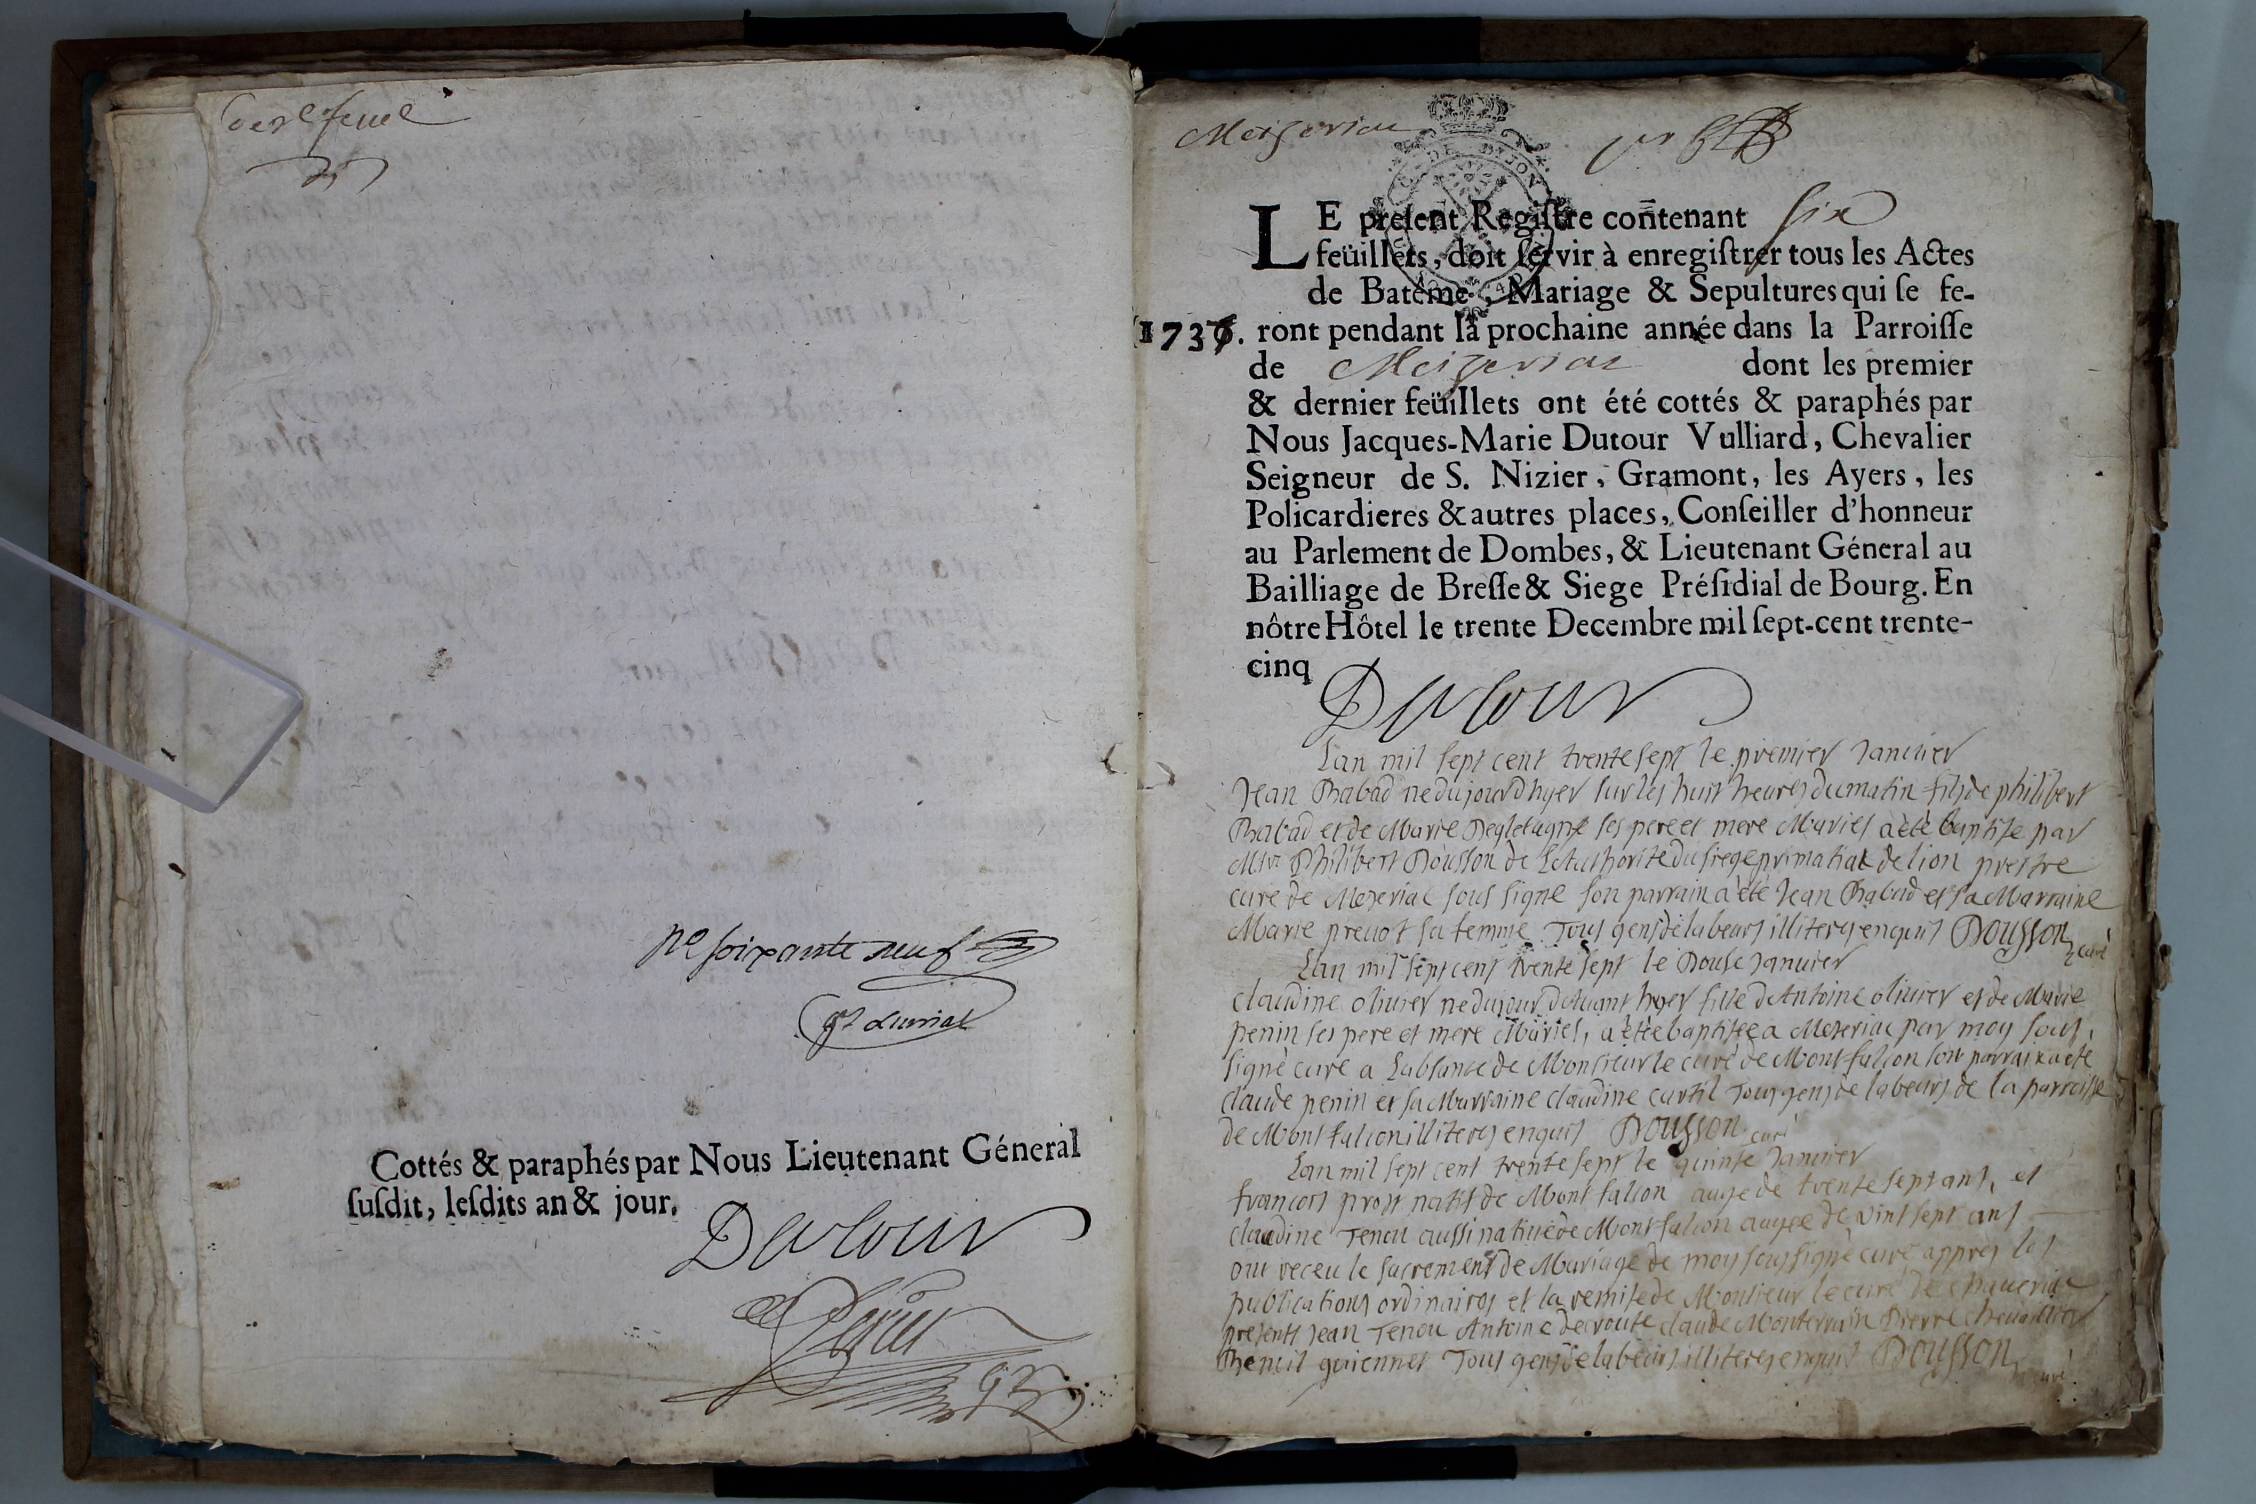 feuel
no soixante neuf
Cottés & paraphés par Nous Lieutenant Géneral
ſuſdit, leſdits an & jour.
Dutour
Mezeriac
LE preſent Regiſtre contenant six
feüillets, doit ſervir à enregiſtrer tous les Actes
de Batême, Mariage & Sepultures qui ſe fe-
1736. ront pendant la prochaine année dans la Parroiſſe
de Mezeriac dont les premier
& dernier feüillets ont été cottés & paraphés par
Nous Jacques-Marie Dutour Vulliard, Chevalier
Seigneur de S. Nizier, Gramont, les Ayers, les
Policardieres & autres places, Conſeiller d'honneur
au Parlement de Dombes, & Lieutenant Géneral au
Bailliage de Breſſe & Siege Préſidial de Bourg. En
nôtre Hôtel le trente Decembre mil ſept-cent trente-
cinq
Dutour
Lan mil sept cent trente sept le premier Janvier
Jean Rabad ne du jour dhyer sur les huit heures du matin fils de philibert
Rabad et de Marie ses pere et mere Maries a été baptise par
Mre Philibert Dousson de Lauthorité du siege primatial de lion prestre
curé de Mezeriac sous signe son parrain a été Jean Rabad et sa Marraine
Marie prevot sa femme Tous gens de labeurs illiteres enquis Dousson curé
Lan mil sept cent trente sept le Douse Janvier
claudine olivier ne du jour devant hyer fille dAntoine olivier et de Marie
penin ses pere et mere Maries, a étée baptisée a Mezeriac par moy sous
signé curé a Labsance de Monsieur le curé de Montfalcon son parrain a été
claude penin et sa Marraine claudine curtil Tous gens de labeurs de la parroisse
de Montfalcon illiteres enquis Dousson curé
Lan mil sept cent trente sept le quinse Janvier
francois prost natif de Mont falcon auge de trente sept ans, et
claudine Tenou aussi native de Mont falcon augee de vint sept ans
ont receu le sacrement de Mariage de moy soussigné curé appres les
publications ordinaires et la remise de Monsieur le curé de chaveriat
presents Jean Tenou Antoine decroute claude Monterrain Pierre chevallier
Benoit guiennet Tous gens de labeurs illiteres enquis Dousson curé